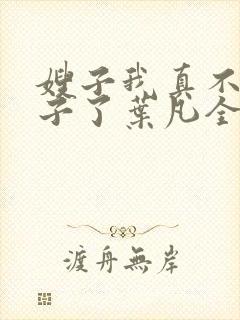 嫂子我真不
子了葉凡全
渡舟無岸